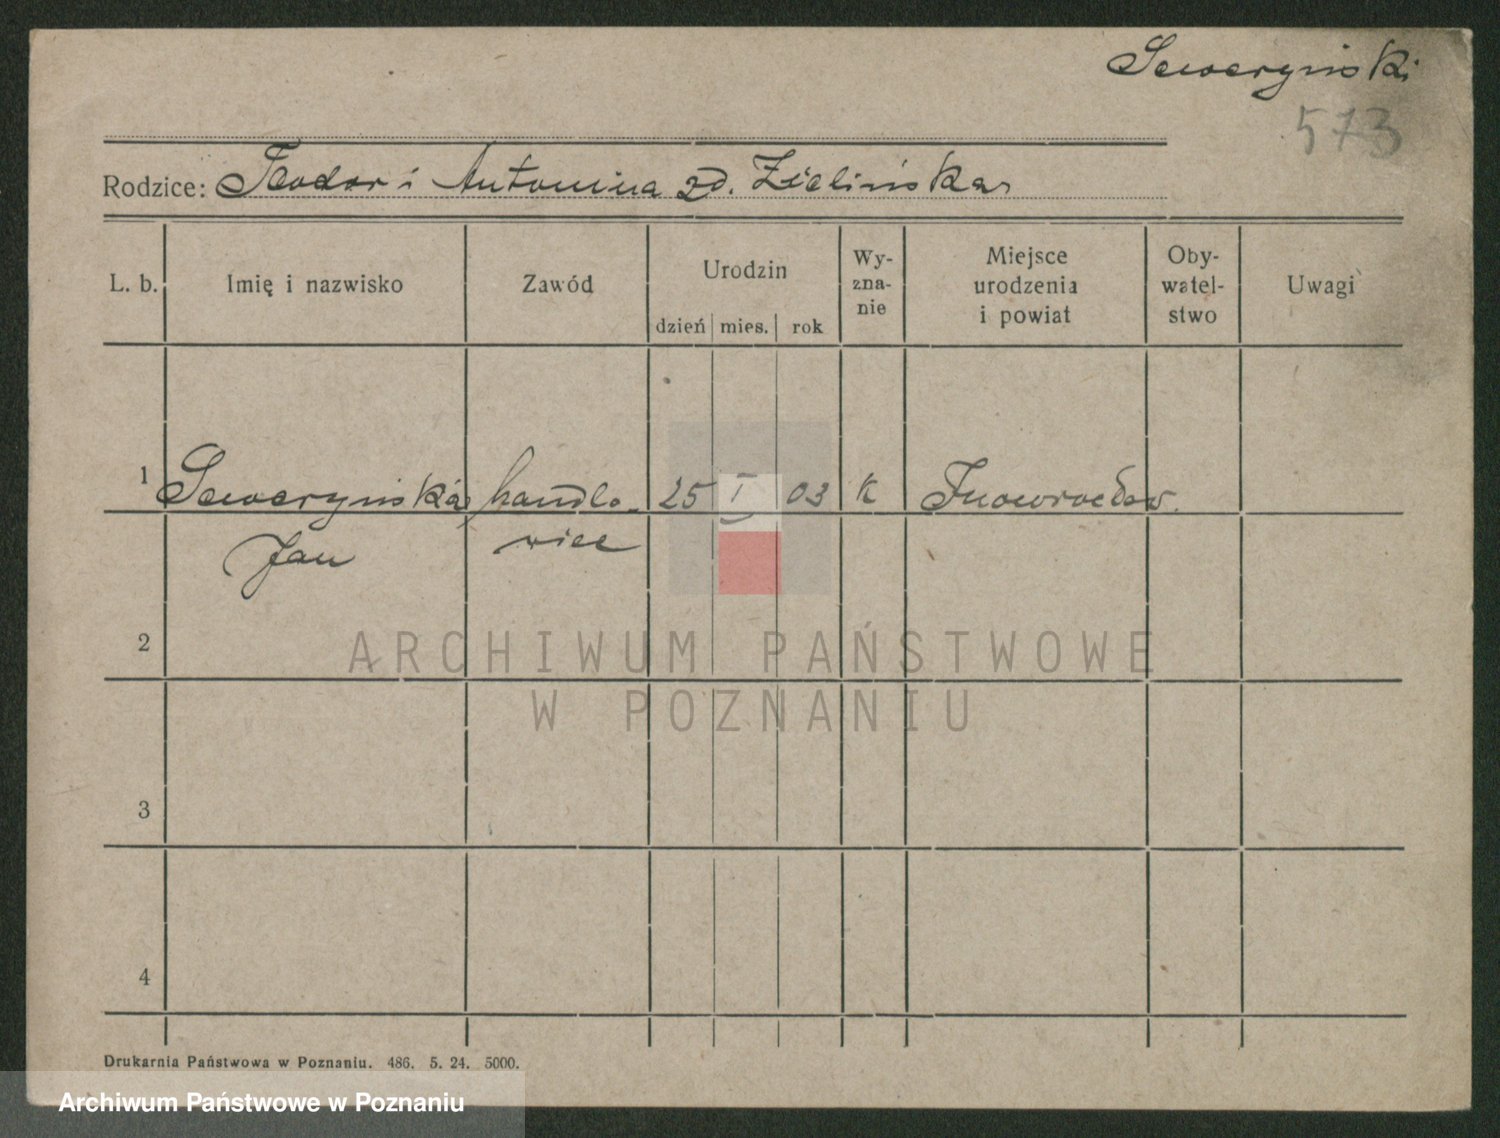 Seweryński
573
Rodzice: Teodor i Antonina zd. Zielińska
L. b. Imię i nazwisko Zawód Urodzin dzień mies. rok Wyznanie Miejsce urodzenia i powiat Obywatelstwo Uwagi
1 Seweryński handlo- 25 I 03 K Inowrocław.
Jan wiec
2
ARCHIWUM PAŃSTWOWE
W POZNANIU
3
4
Drukarnia Państwowa w Poznaniu. 486. 5. 24. 5000.
Archiwum Państwowe w Poznaniu